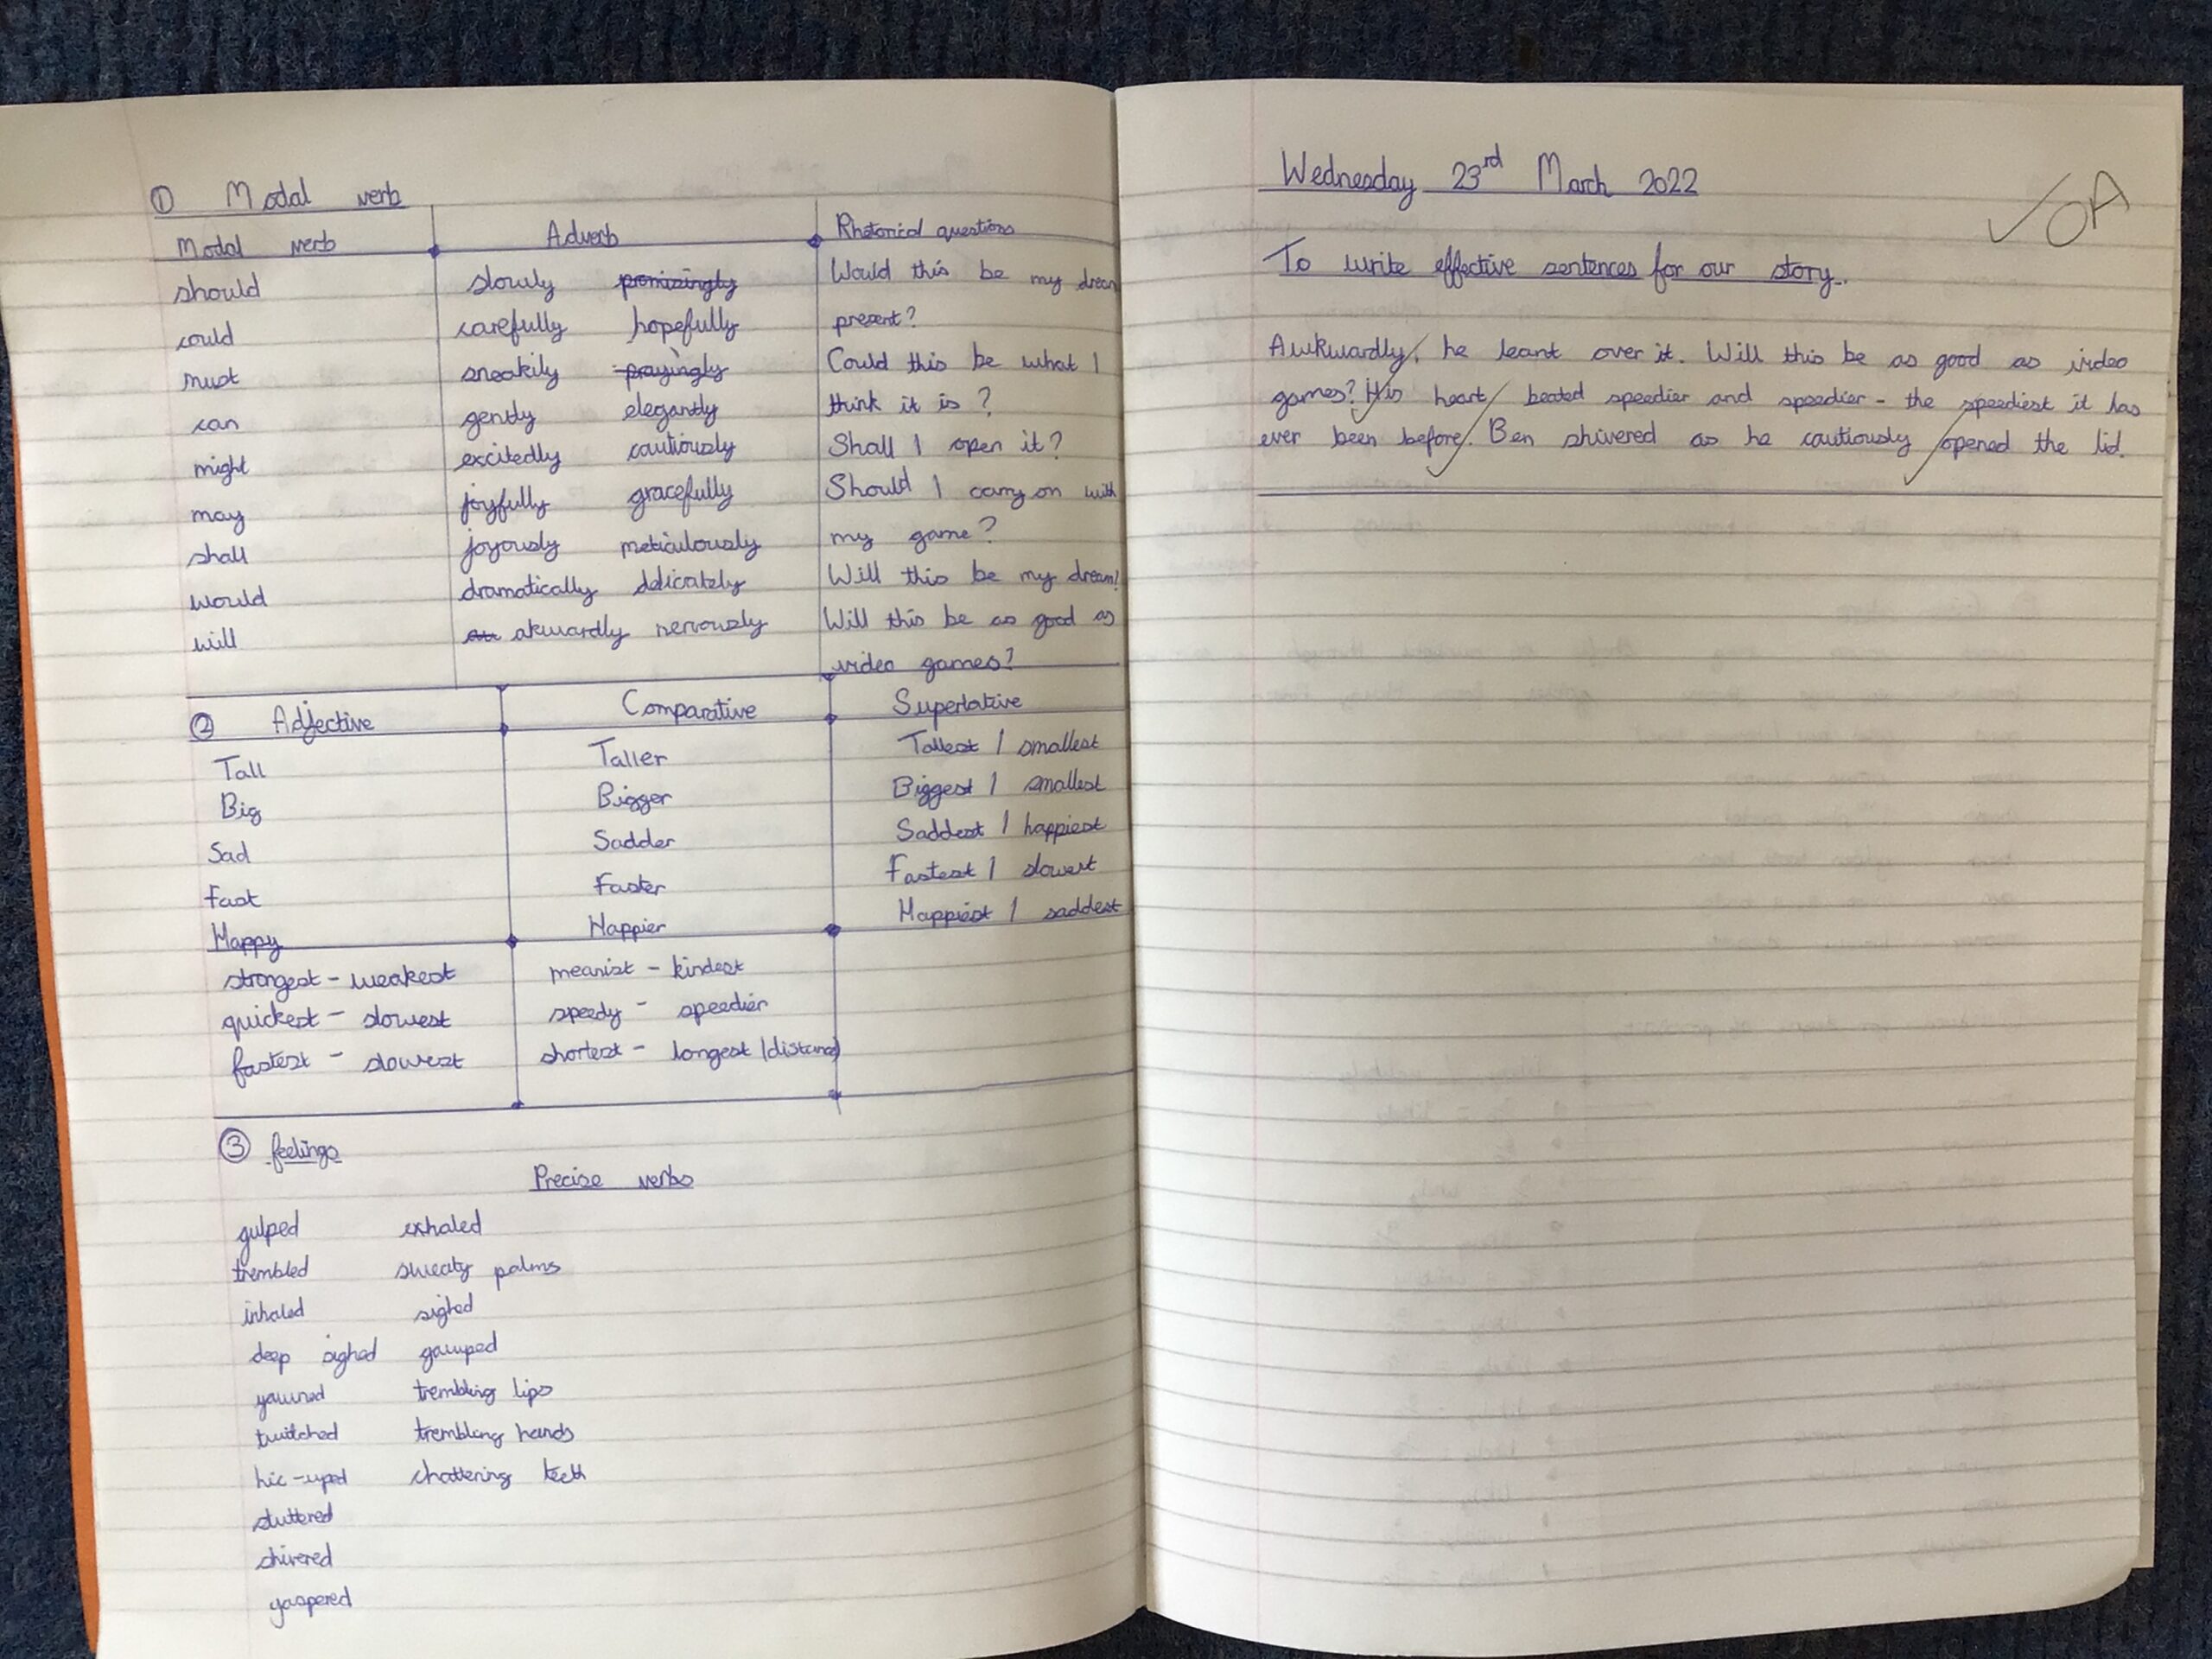 ① Modal verb
Modal verb Adverb Rhetorical questions
should slowly promisingly Would this be my dream
could carefully hopefully present?
must sneakily prayingly Could this be what I
can gently elegantly think it is?
might excitedly cautiously Shall I open it?
may joyfully gracefully Should I carry on with
shall joyously meticulously my game?
would dramatically delicately Will this be my dream!
will akwardly nervously Will this be as good as
video games?
② Adjective Comparative Superlative
Tall Taller Tallest / smallest
Big Bigger Biggest / smallest
Sad Sadder Saddest / happiest
Fast Faster Fastest / slowest
Happy Happier Happiest / saddest
strongest - weakest meanist - kindest
quickest - slowest speedy - speedier
fastest - slowest shortest - longest (distance)
③ feelings
Precise verbs
gulped exhaled
trembled sweaty palms
inhaled sighed
deep sighed gawped
yawned trembling lips
twitched trembling hands
hic-uped chattering teeth
stuttered
shivered
gaspered
Wednesday 23rd March 2022
OA
To write effective sentences for our story.
Awkwardly, he leant over it. Will this be as good as video
games? His heart beated speedier and speedier - the speediest it has
ever been before. Ben shivered as he cautiously opened the lid.